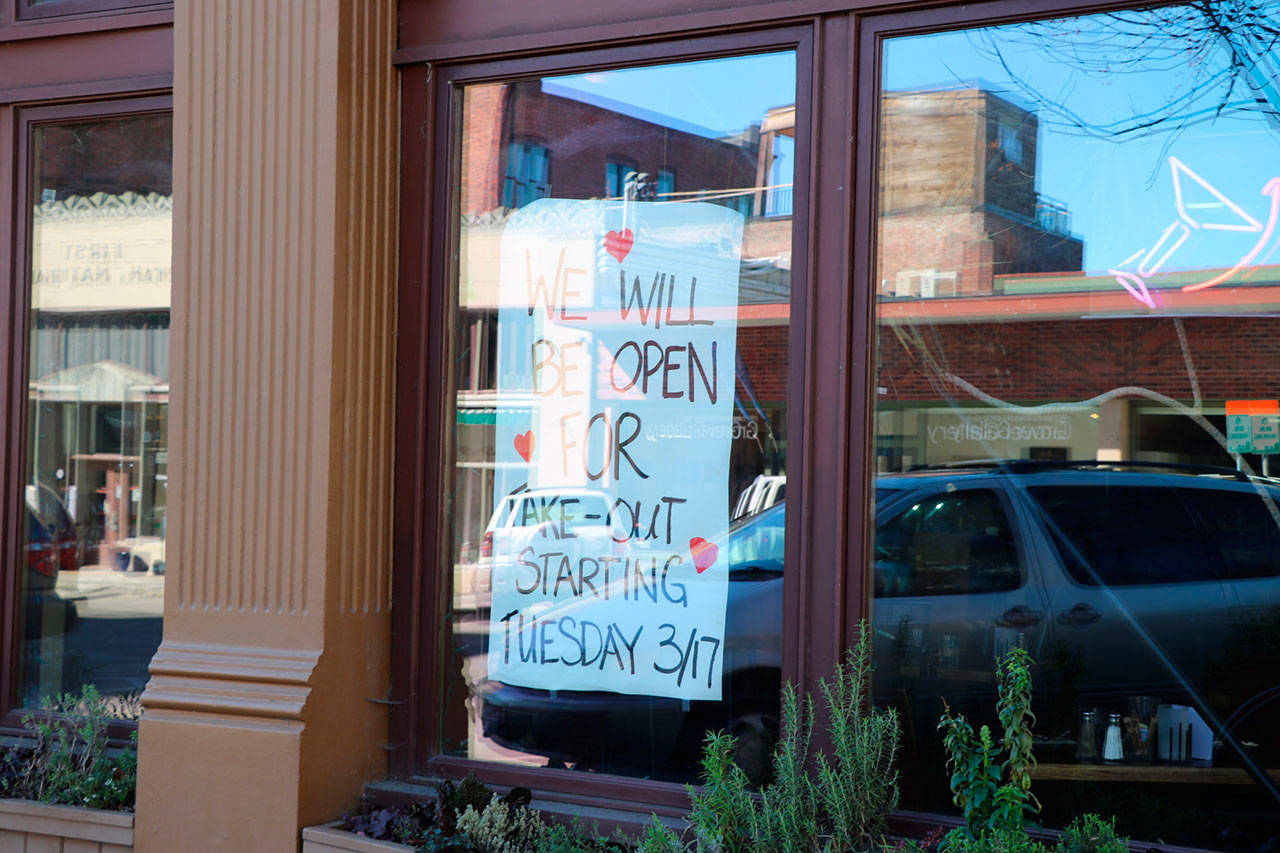 WE WILL
BE OPEN
FOR
TAKE-OUT
STARTING
TUESDAY 3/17
FIRST
NATIONAL